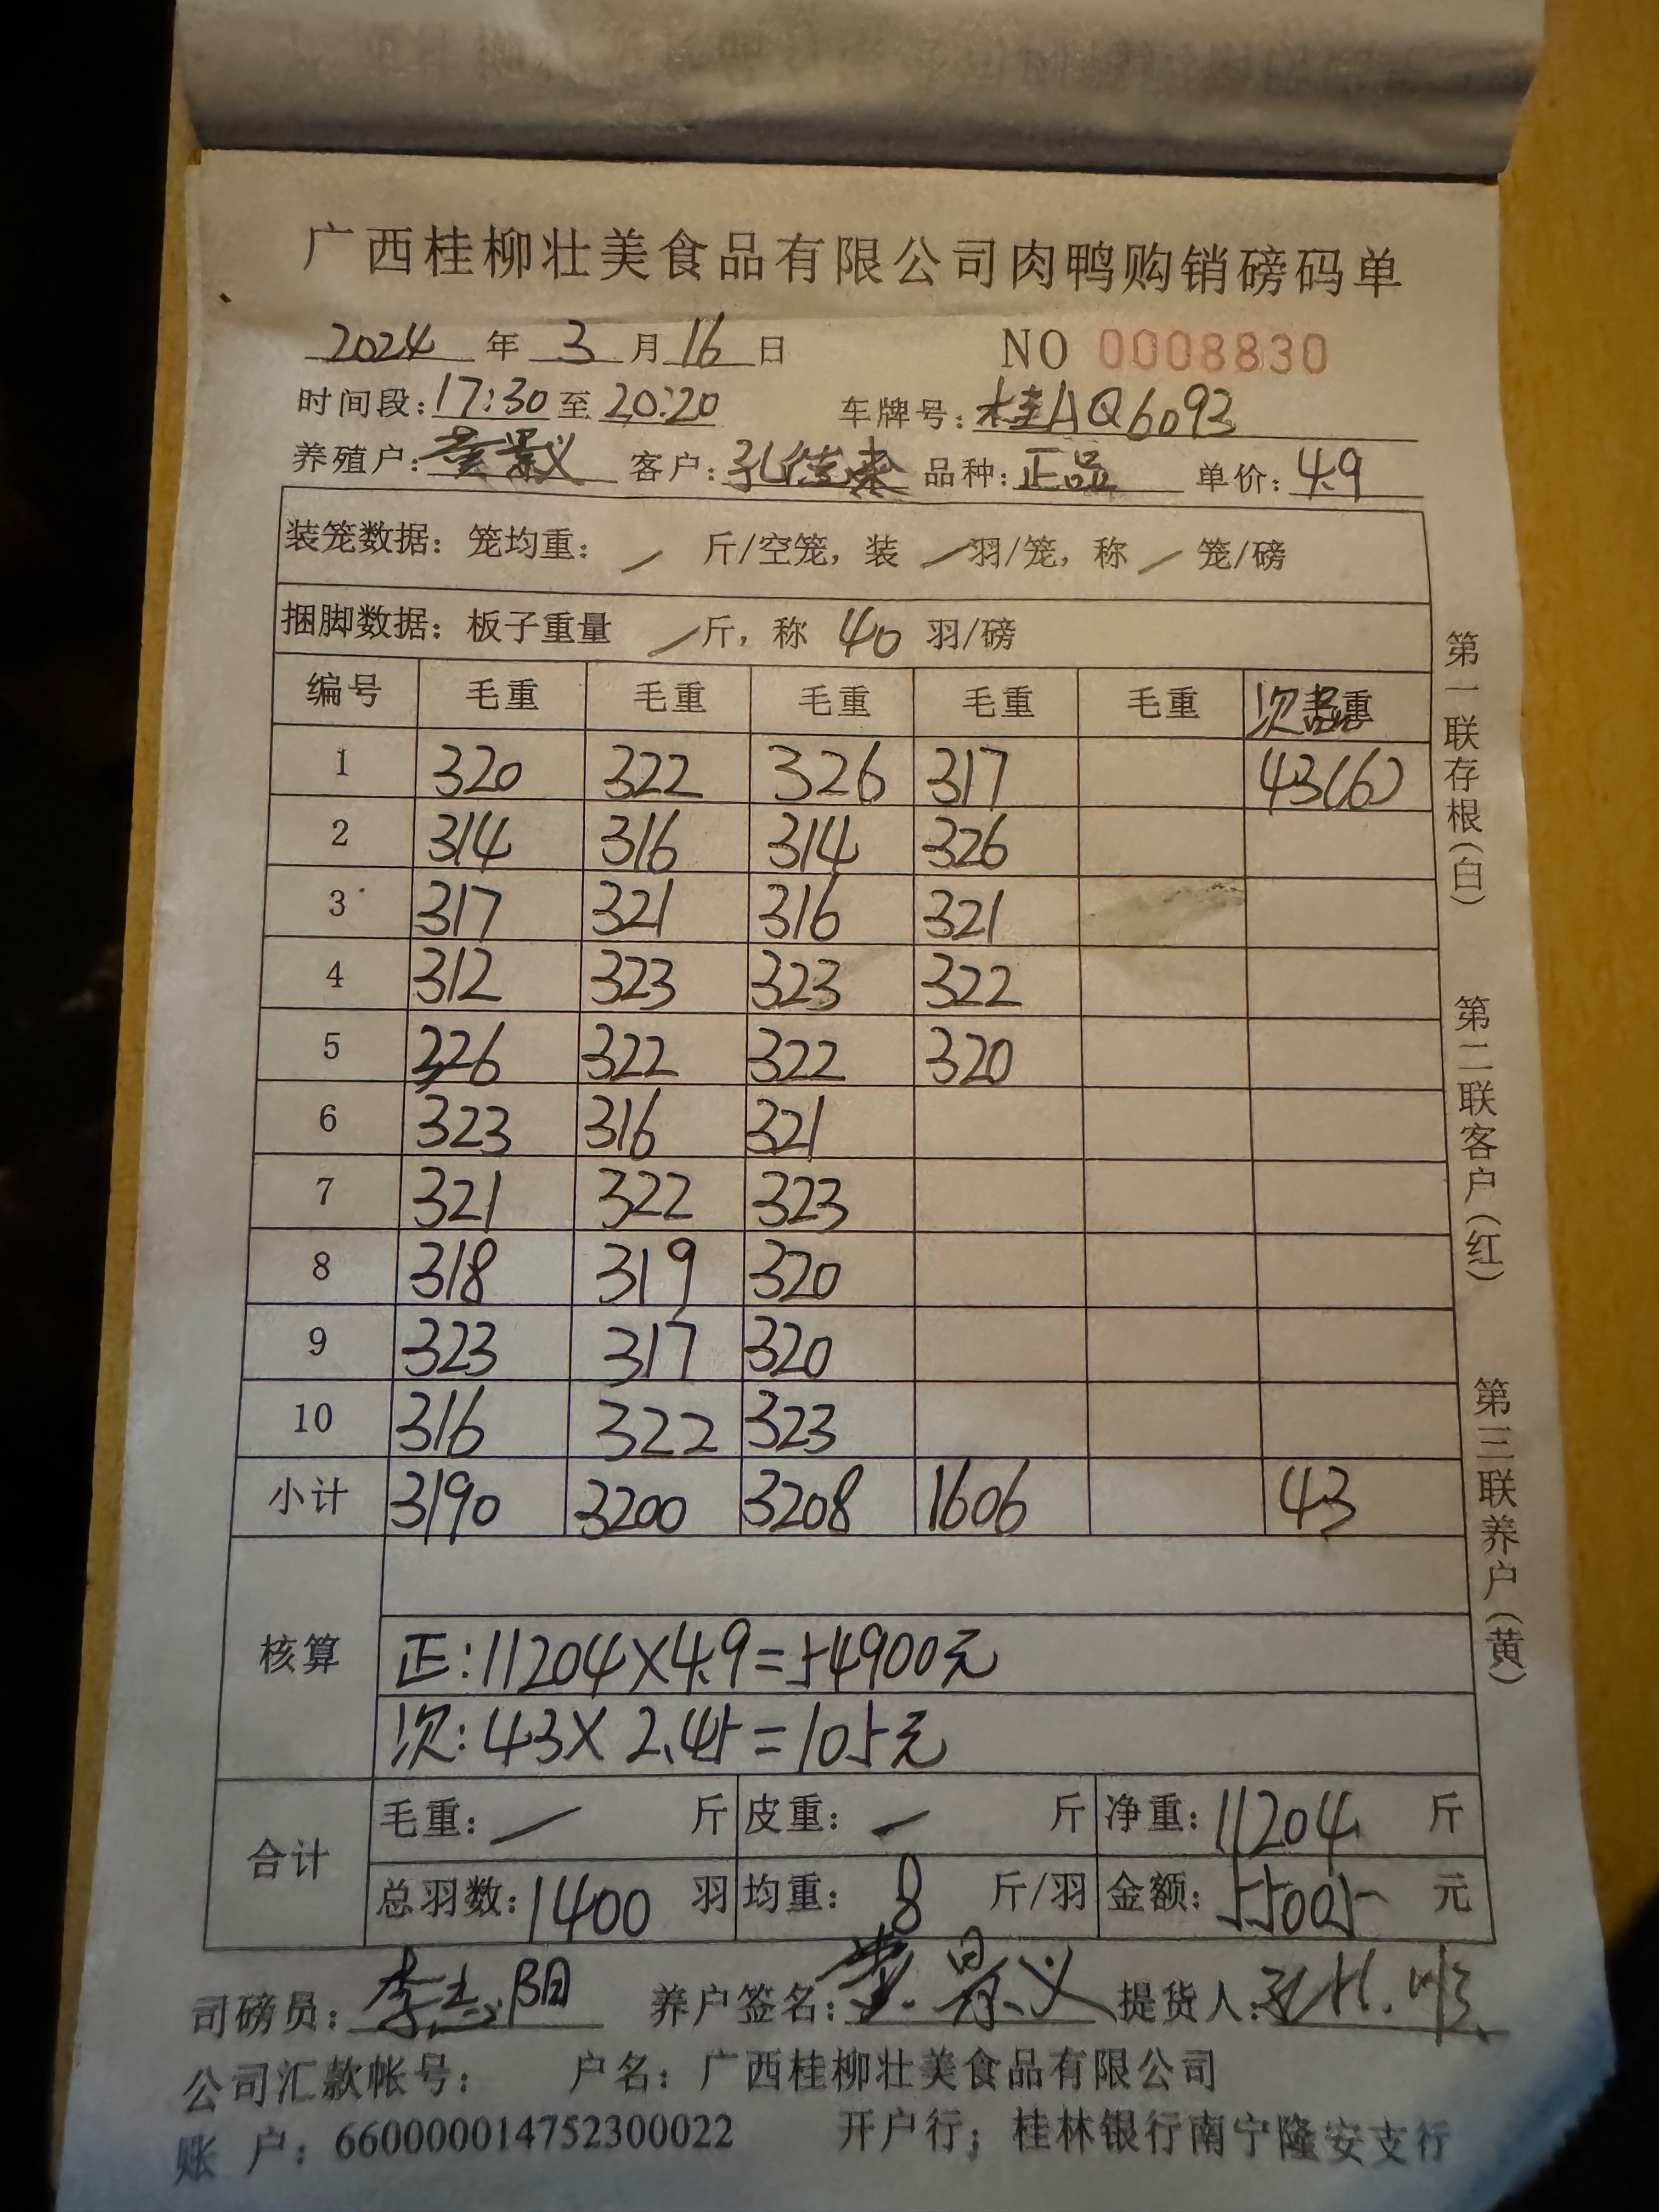 广西桂柳壮美食品有限公司肉鸭购销磅码单
2024 年 3 月 16 日 NO 0008830
时间段:17:30 至 20:20 车牌号:桂AQ6093
养殖户:黄景义 客户: 品种:正品 单价:4.9
装笼数据:笼均重: / 斤/空笼,装 / 羽/笼,称 / 笼/磅
捆脚数据:板子重量 / 斤,称 40 羽/磅
编号 毛重 毛重 毛重 毛重 毛重 次品重
1 320 322 326 317 43(6)
2 314 316 314 326
3 317 321 316 321
4 312 323 323 322
5 326 322 322 320
6 323 316 321
7 321 322 323
8 318 319 320
9 323 317 320
10 316 322 323
小计 3190 3200 3208 1606 43
核算
正:11204×4.9=54900元
次:43×2.45=105元
合计
毛重: / 斤 皮重: / 斤 净重:11204 斤
总羽数:1400 羽 均重: 8 斤/羽 金额:55005 元
司磅员:李 阳 养户签名:黄景义 提货人:
公司汇款帐号: 户名:广西桂柳壮美食品有限公司
账 户:660000014752300022 开户行;桂林银行南宁隆安支行
第一联存根(白)
第二联客户(红)
第三联养户(黄)